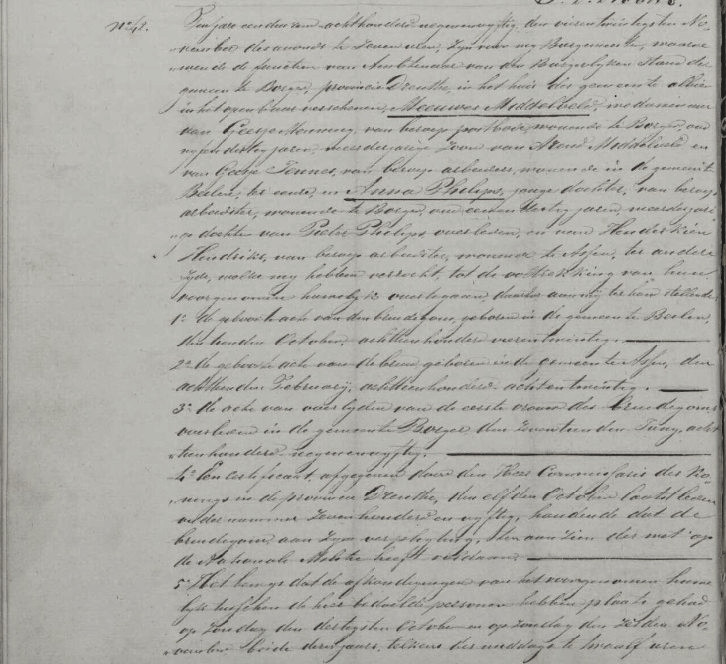 No 42.
Den jare een duizend achthonderd negenenvyftig den vierentwintigsten No-
vember des avonds te zeven uren, zyn voor my Burgemeester, waarne-
mende de functien van Ambtenaar van den Burgerlyken Stand der
gemeente Borger, provincie Drenthe, in het huis der gemeente alhier
in het openbaar verschenen, Meeuwes Middelbeld, weduwnaar
van Geesje Henning, van beroep postbode, wonende te Borger, oud
vyfendertig jaren, meerderjarige Zoon van Arend Middelveld en
van Geesje Tonnes, van beroep arbeiders, wonende in de gemeente
Beilen, ter eenre, en Anna Philips, jonge dochter, van beroep
arbeidster, wonende te Borger, oud eenendertig jaren, meerderjari-
ge dochter van Pieter Philips, overleden, en van Henderkien
Hendriks, van beroep arbeidster, wonende te Assen, ter andere
zyde, welke my hebben verzocht, tot de voltrekking van hun
voorgenomen huwelyk over te gaan, daartoe aan my ter hand stellende
1o de geboorte acte van den bruidegom, geboren in de gemeente Beilen,
den October, achttienhonderd vierentwintig.
2o de geboorte acte van de bruid geboren in de gemeente Assen, den
achtsten February, achttienhonderd achtentwintig.
3o de acte van overlyden van de eerste vrouw des bruidegoms
overleden in de gemeente Borger den zeventienden Juny, acht
tienhonderd negenenvyftig.
4o Een certificaat, afgegeven door den Heer Commissaris des Ko-
nings in de provincie Drenthe, den elfden October laatstleden
onder nummer zevenhonderd en vyftig, houdende dat de
bruidegom aan zyne verpligting, ten aanzien der met op
de Nationale Militie heeft voldaan
5o Het bewys dat de afkondigingen van het voorgenomen huwe
lyk tusschen de hier bedoelde personen hebben plaats gehad
op Zondag den dertigsten October en op Zondag den zesden No-
vember beide dezes jaars, telkens des middags te twaalf uren